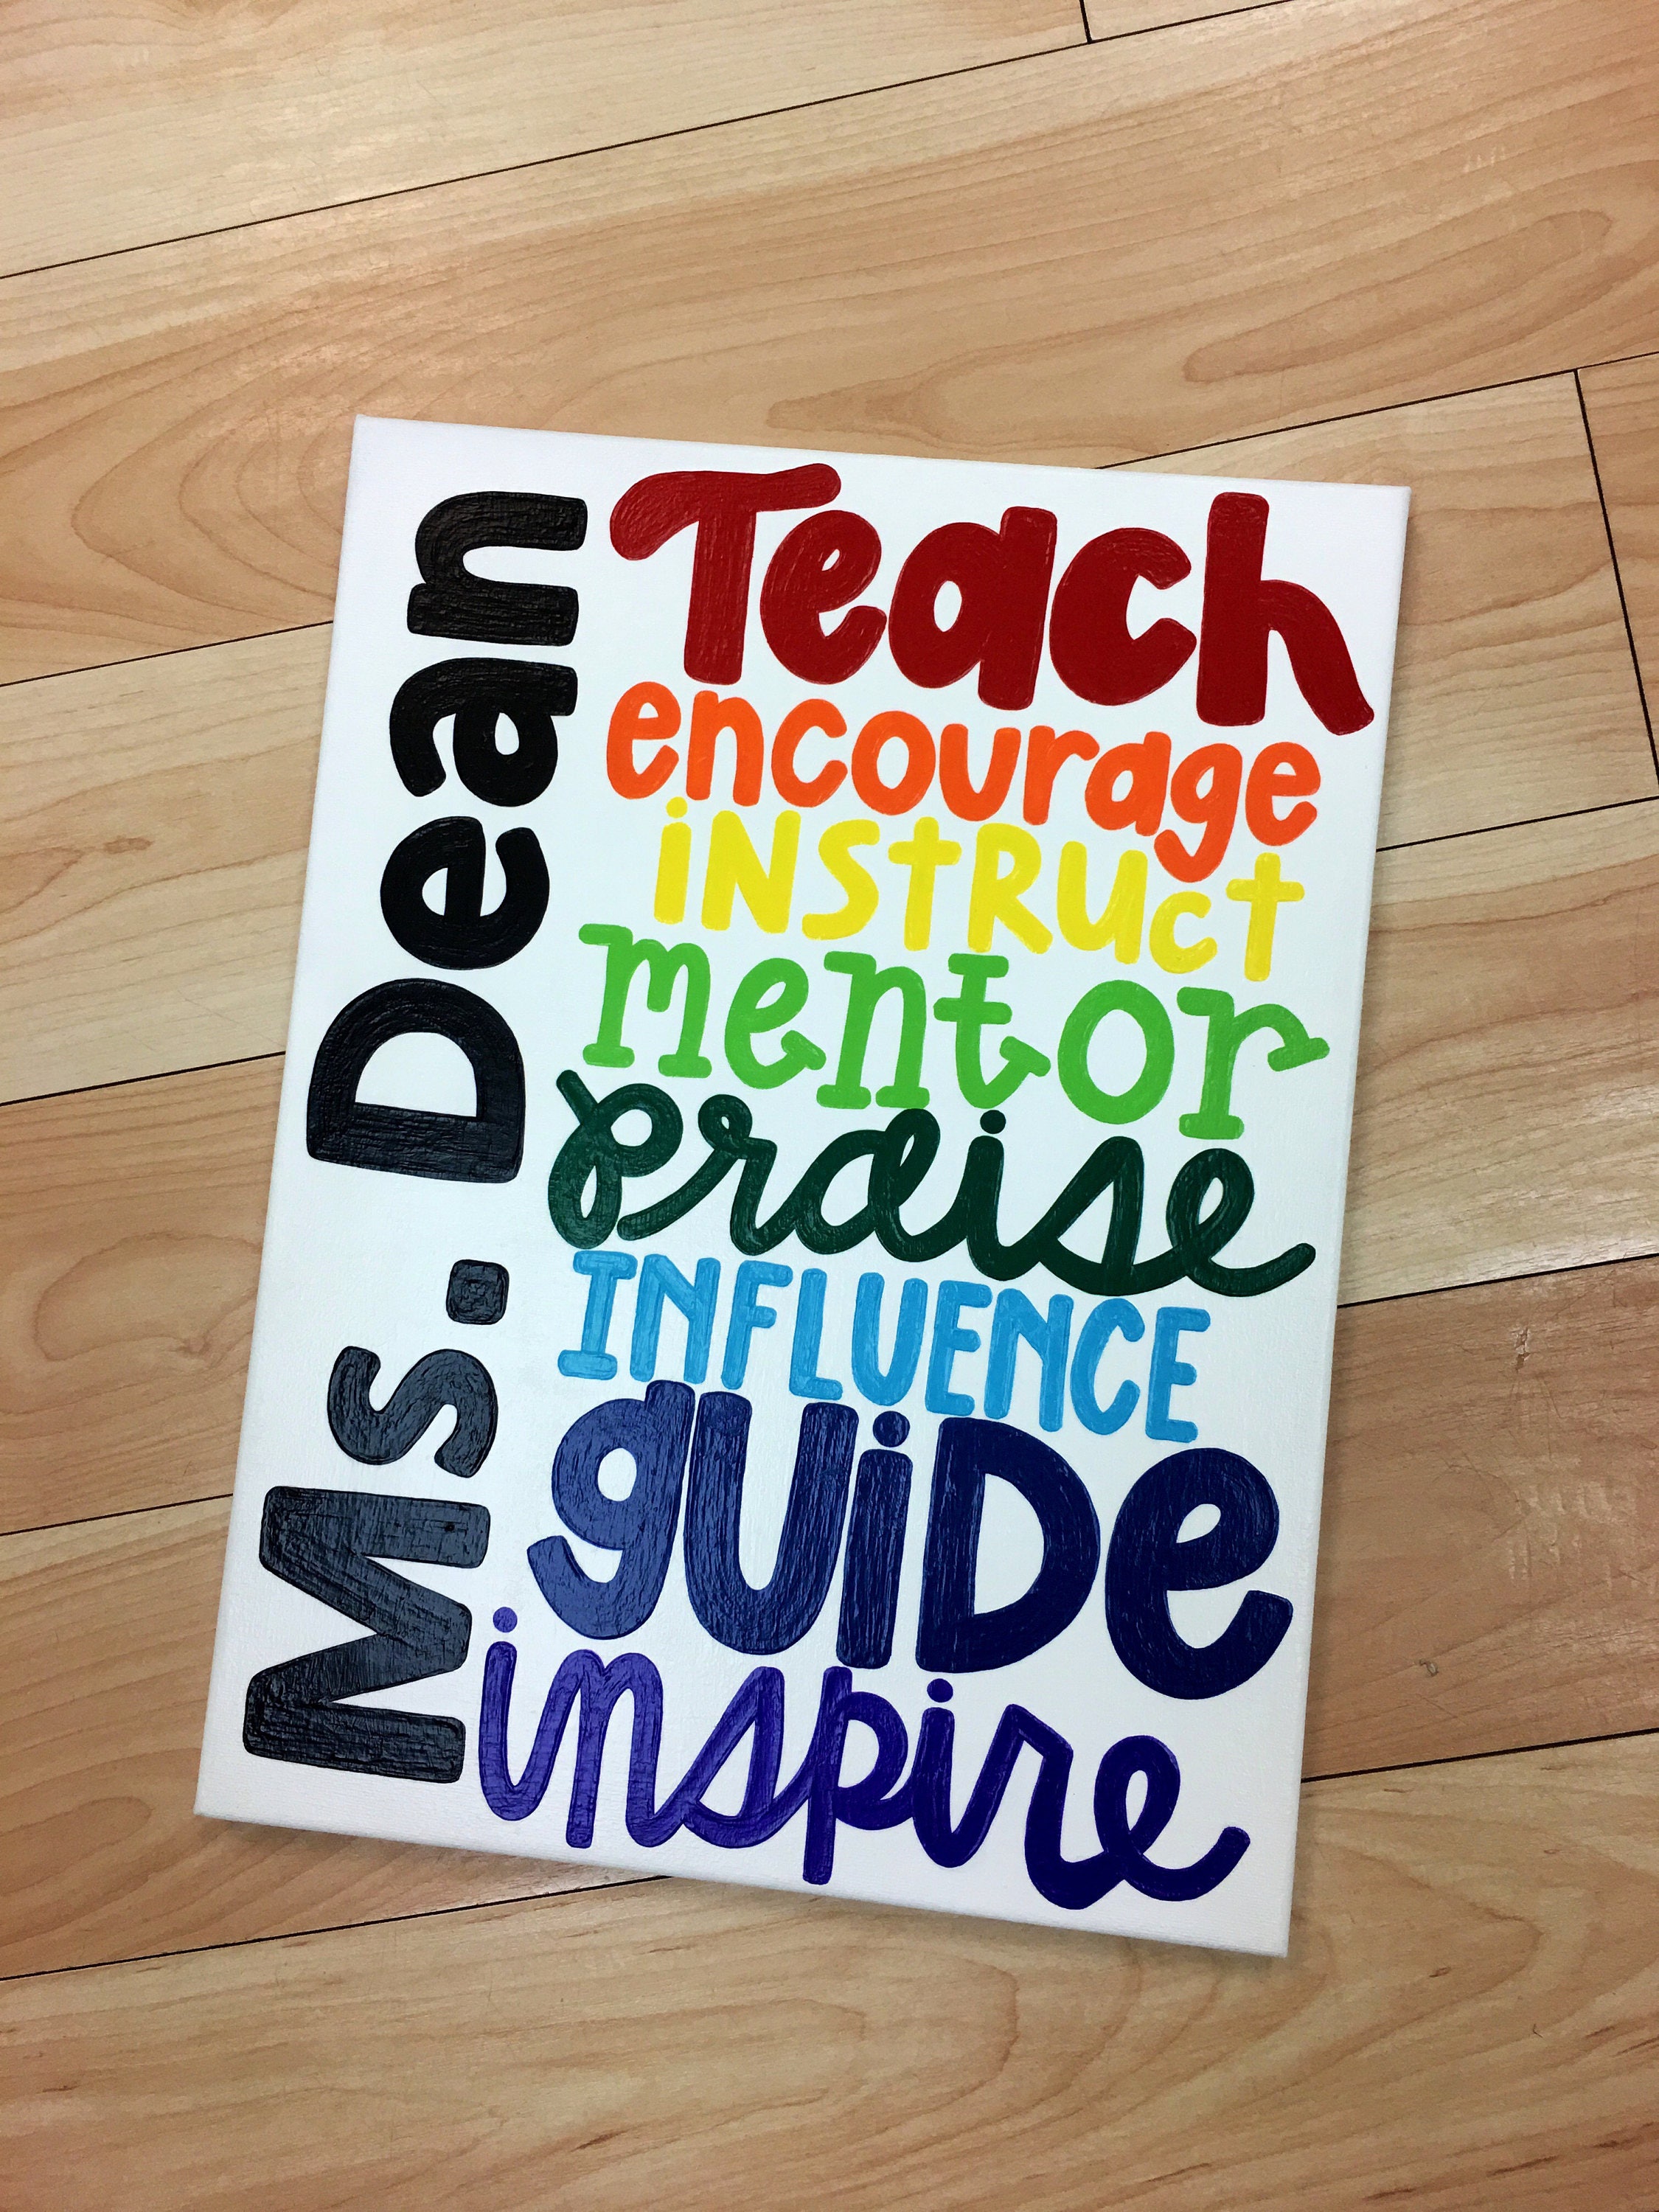 Ms. Dean
Teach
encourage
iNStRUct
mentor
praise
INFLUENCE
guiDe
inspire